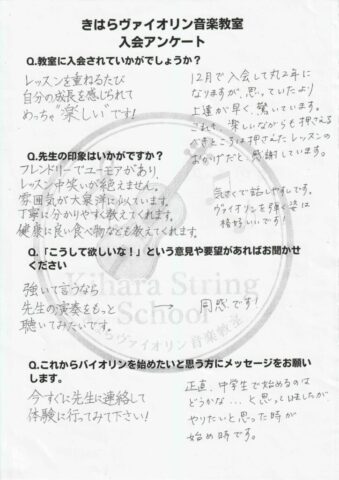 きはらヴァイオリン音楽教室
入会アンケート
Q.教室に入会されていかがでしょうか？
レッスンを重ねるたび
自分の成長を感じられて
めっちゃ"楽しい"です！
12月で入会して丸2年に
なりますが、思っていたより
上達が早く、驚いています。
これも、楽しいながらも押さえる
べきところは押さえたレッスンの
おかげだと、感謝しています。
Q.先生の印象はいかがですか？
フレンドリーでユーモアがあり、
レッスン中笑いが絶えません。
雰囲気が大泉洋に似ています。
丁寧に分かりやすく教えてくれます。
健康に良い食べ物なども教えてくれます。
気さくで話しやすいです。
ヴァイオリンを弾く姿は
格好いいです！
Q.「こうして欲しいな！」という意見や要望があればお聞かせ
ください
強いて言うなら
先生の演奏をもっと
聴いてみたいです。
→ 同感です！
Kihara String
School
きはらヴァイオリン音楽教室
Q.これからバイオリンを始めたいと思う方にメッセージをお願い
します。
今すぐに先生に連絡して
体験に行ってみて下さい！
正直、中学生で始めるのは
どうかな…と思ってましたが
やりたいと思った時が
始め時です。